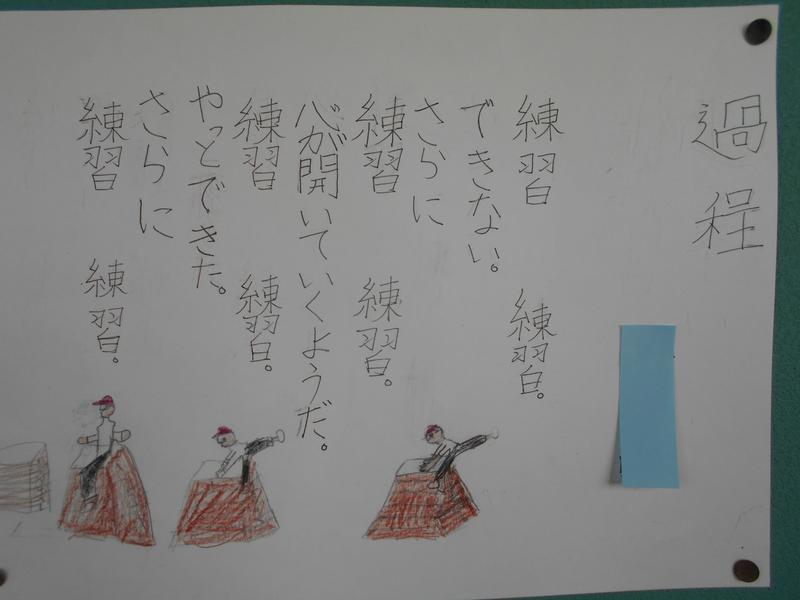 過程
練習 練習。
できない。
さらに
練習 練習。
心が開いていくようだ。
練習 練習。
やっとできた。
さらに
練習 練習。